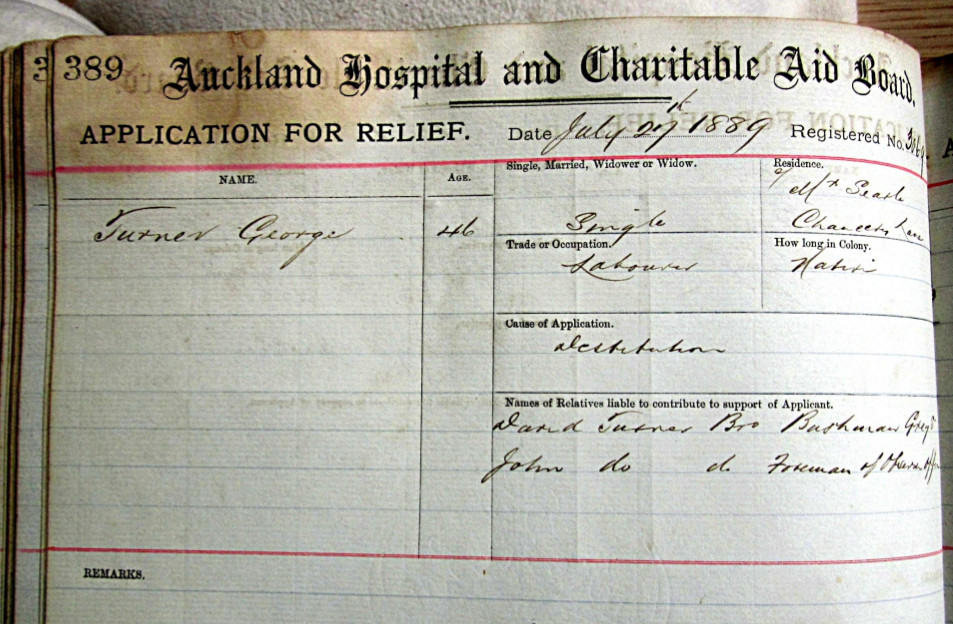 389 Auckland Hospital and Charitable Aid Board.
APPLICATION FOR RELIEF. Date July 27th 1889 Registered No.
NAME.
AGE.
Single, Married, Widower or Widow.
Residence.
Turner George
46
Single
Mr Searle
Chancery Lane
Trade or Occupation.
Labourer
How long in Colony.
Native
Cause of Application.
Destitution
Names of Relatives liable to contribute to support of Applicant.
David Turner Bro Bushman
John do do Foreman of
REMARKS.